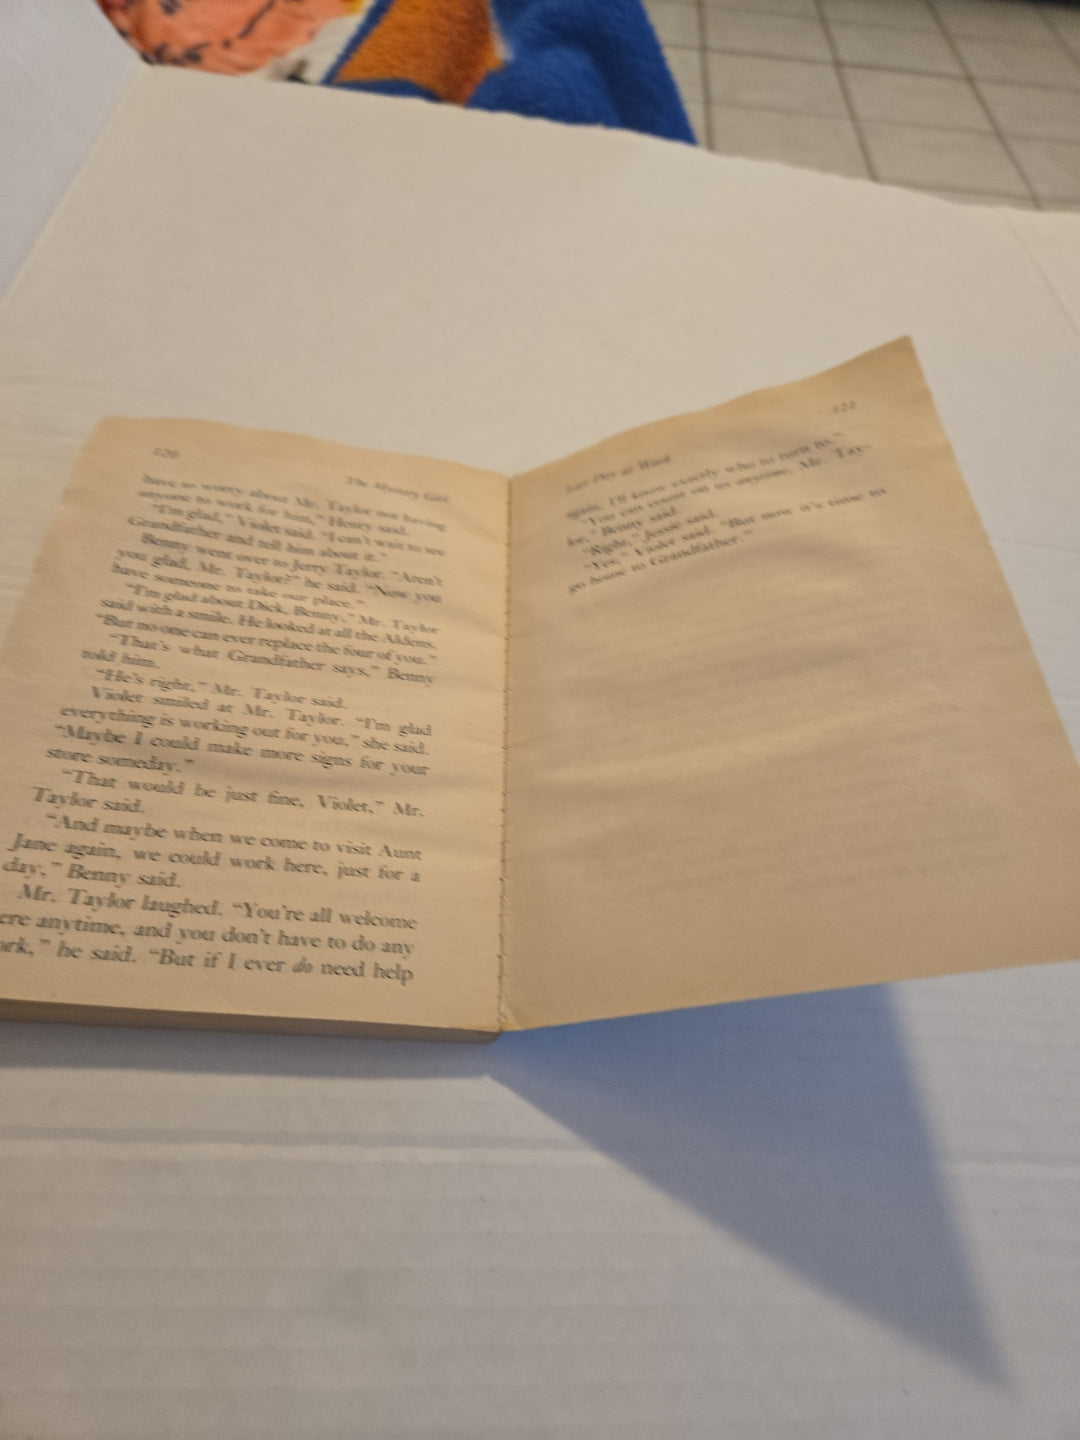 120
The Mystery Girl
have to worry about Mr. Taylor not having
anyone to work for him," Henry said.
"I'm glad," Violet said. "I can't wait to see
Grandfather and tell him about it."
Benny went over to Jerry Taylor. "Aren't
you glad, Mr. Taylor?" he said. "Now you
have someone to take our place."
"I'm glad about Dick, Benny," Mr. Taylor
said with a smile. He looked at all the Aldens.
"But no one can ever replace the four of you."
"That's what Grandfather says," Benny
told him.
"He's right," Mr. Taylor said.
Violet smiled at Mr. Taylor. "I'm glad
everything is working out for you," she said.
"Maybe I could make more signs for your
store someday."
"That would be just fine, Violet," Mr.
Taylor said.
"And maybe when we come to visit Aunt
Jane again, we could work here, just for a
day," Benny said.
Mr. Taylor laughed. "You're all welcome
ere anytime, and you don't have to do any
ork," he said. "But if I ever do need help
Last Day at Work
121
again, I'll know exactly who to turn to."
"You can count on us anytime, Mr. Tay-
lor," Benny said.
"Right," Jessie said.
"Yes," Violet said. "But now it's time to
go home to Grandfather."